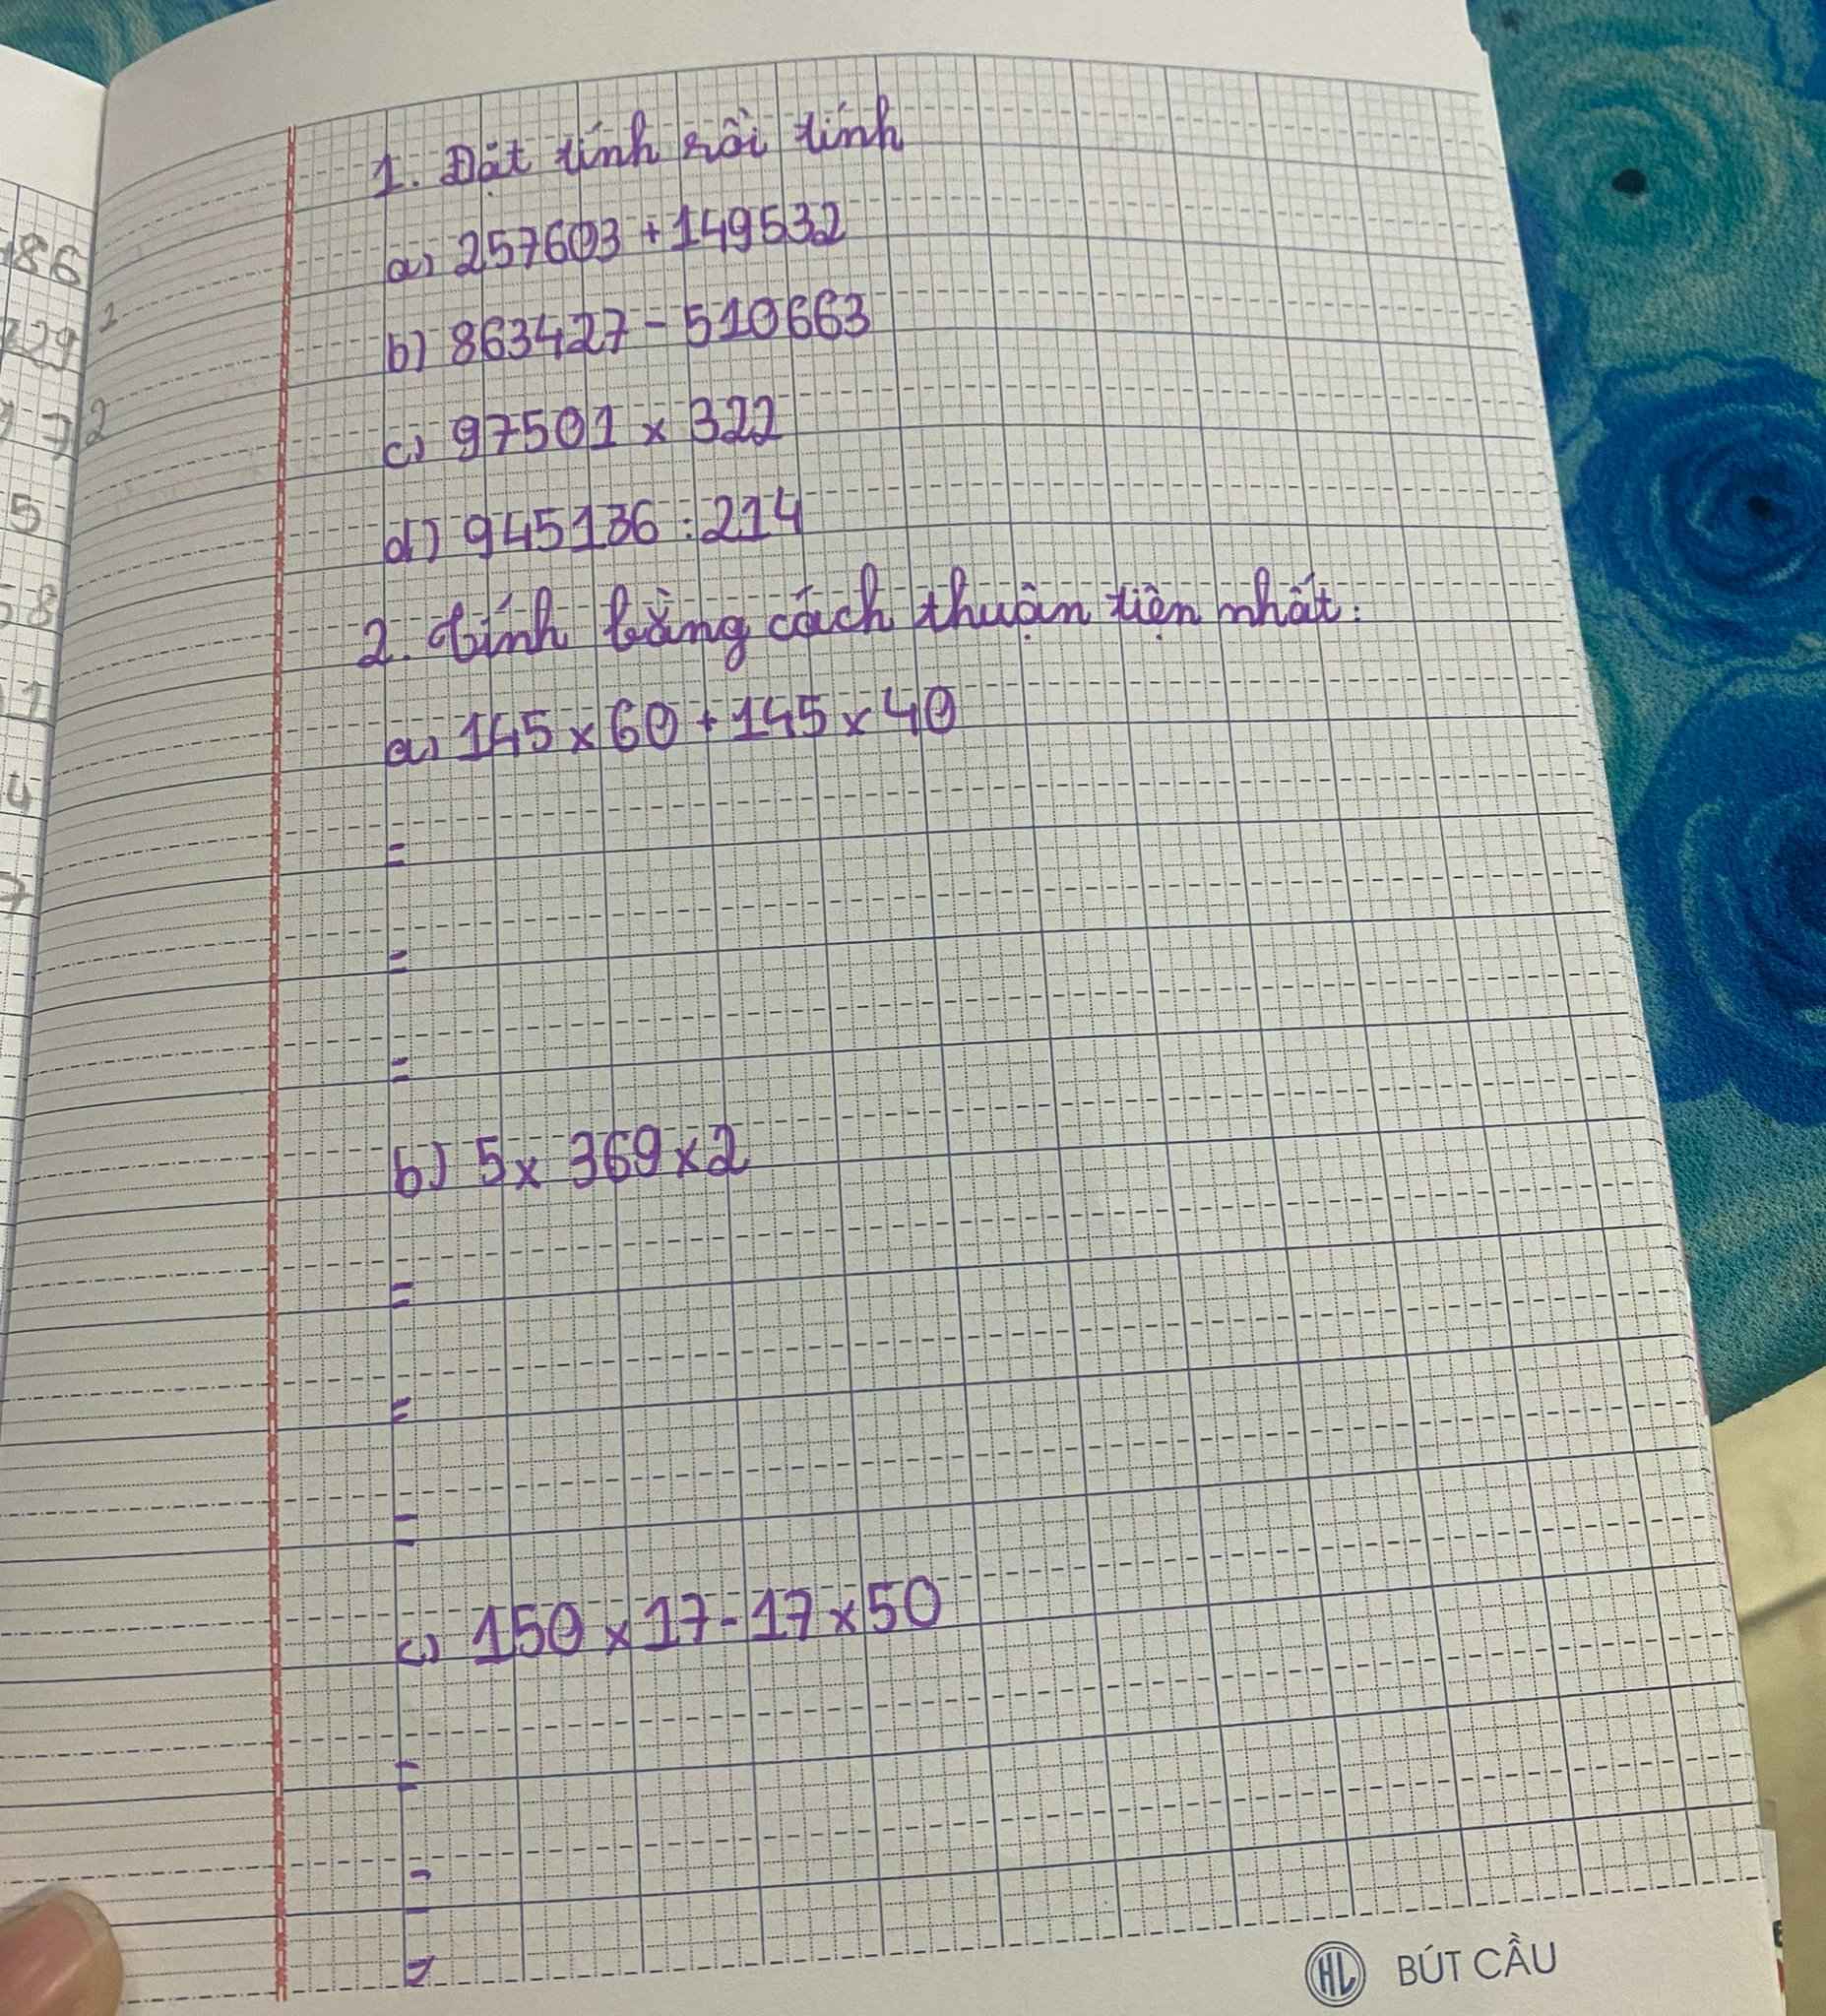 1. Đặt tính rồi tính
a) 257603 + 149532
b) 863427 - 510663
c) 97501 x 322
d) 945136 : 214
2. Tính bằng cách thuận tiện nhất:
a) 145 x 60 + 145 x 40
=
=
=
b) 5 x 369 x 2
=
=
=
c) 150 x 17 - 17 x 50
=
=
=
HL BÚT CẦU
86
229
2
72
5
58
1
4
7